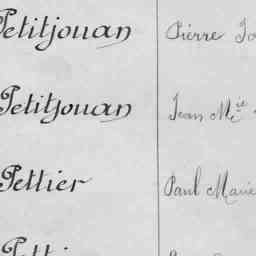 Petitjouan Pierre
Petitjouan Jean Mie
Pettier Paul Marie